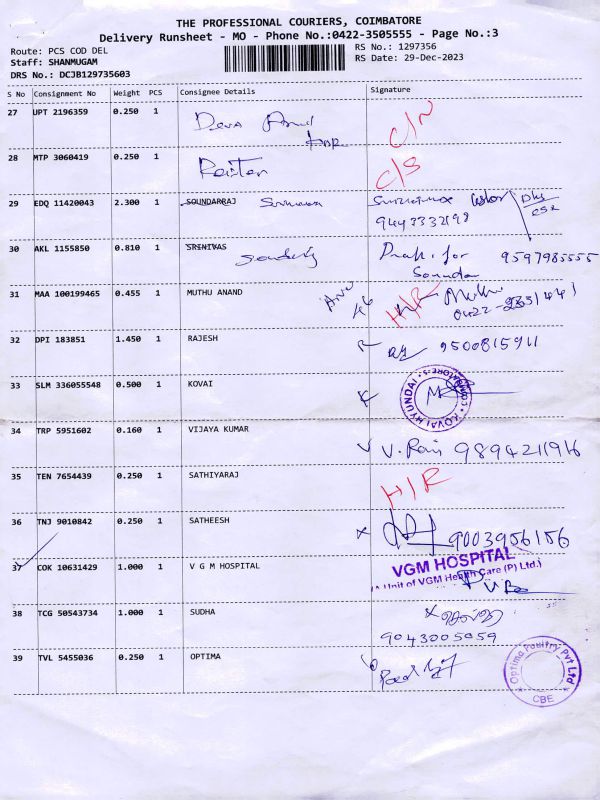 THE PROFESSIONAL COURIERS, COIMBATORE
Delivery Runsheet - MO - Phone No.:0422-3505555 - Page No.:3
Route: PCS COD DEL
Staff: SHANMUGAM
DRS No.: DCJB129735603
RS No.: 1297356
RS Date: 29-Dec-2023
S No Consignment No Weight PCS Consignee Details Signature
27 UPT 2196359 0.250 1 C/N
28 MTP 3060419 0.250 1 C/S
29 EDQ 11420043 2.300 1 SOUNDARRAJ
9443332198
30 AKL 1155850 0.810 1 SRINIVAS 9597985555
31 MAA 100199465 0.455 1 MUTHU ANAND H/R
32 DPI 183851 1.450 1 RAJESH 9500815911
33 SLM 336055548 0.500 1 KOVAI KOVAI HYUNDAI
34 TRP 5951602 0.160 1 VIJAYA KUMAR 9894211916
35 TEN 7654439 0.250 1 SATHIYARAJ H/R
36 TNJ 9010842 0.250 1 SATHEESH 9003956156
37 COK 10631429 1.000 1 V G M HOSPITAL VGM HOSPITAL
(A Unit of VGM Health Care (P) Ltd.)
38 TCG 50543734 1.000 1 SUDHA
9043005059
39 TVL 5455036 0.250 1 OPTIMA Optima Poultry Pvt Ltd
CBE